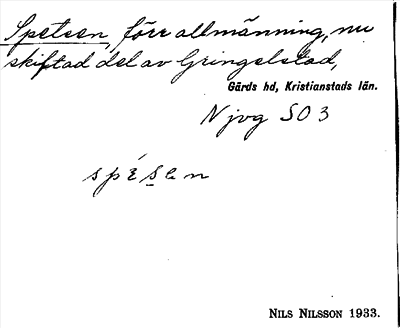 Spetsen, förr allmänning, nu
skiftad del av Gringelstad,
Gärds hd, Kristianstads län.
Njvg SO3
NILS NILSSON 1933.